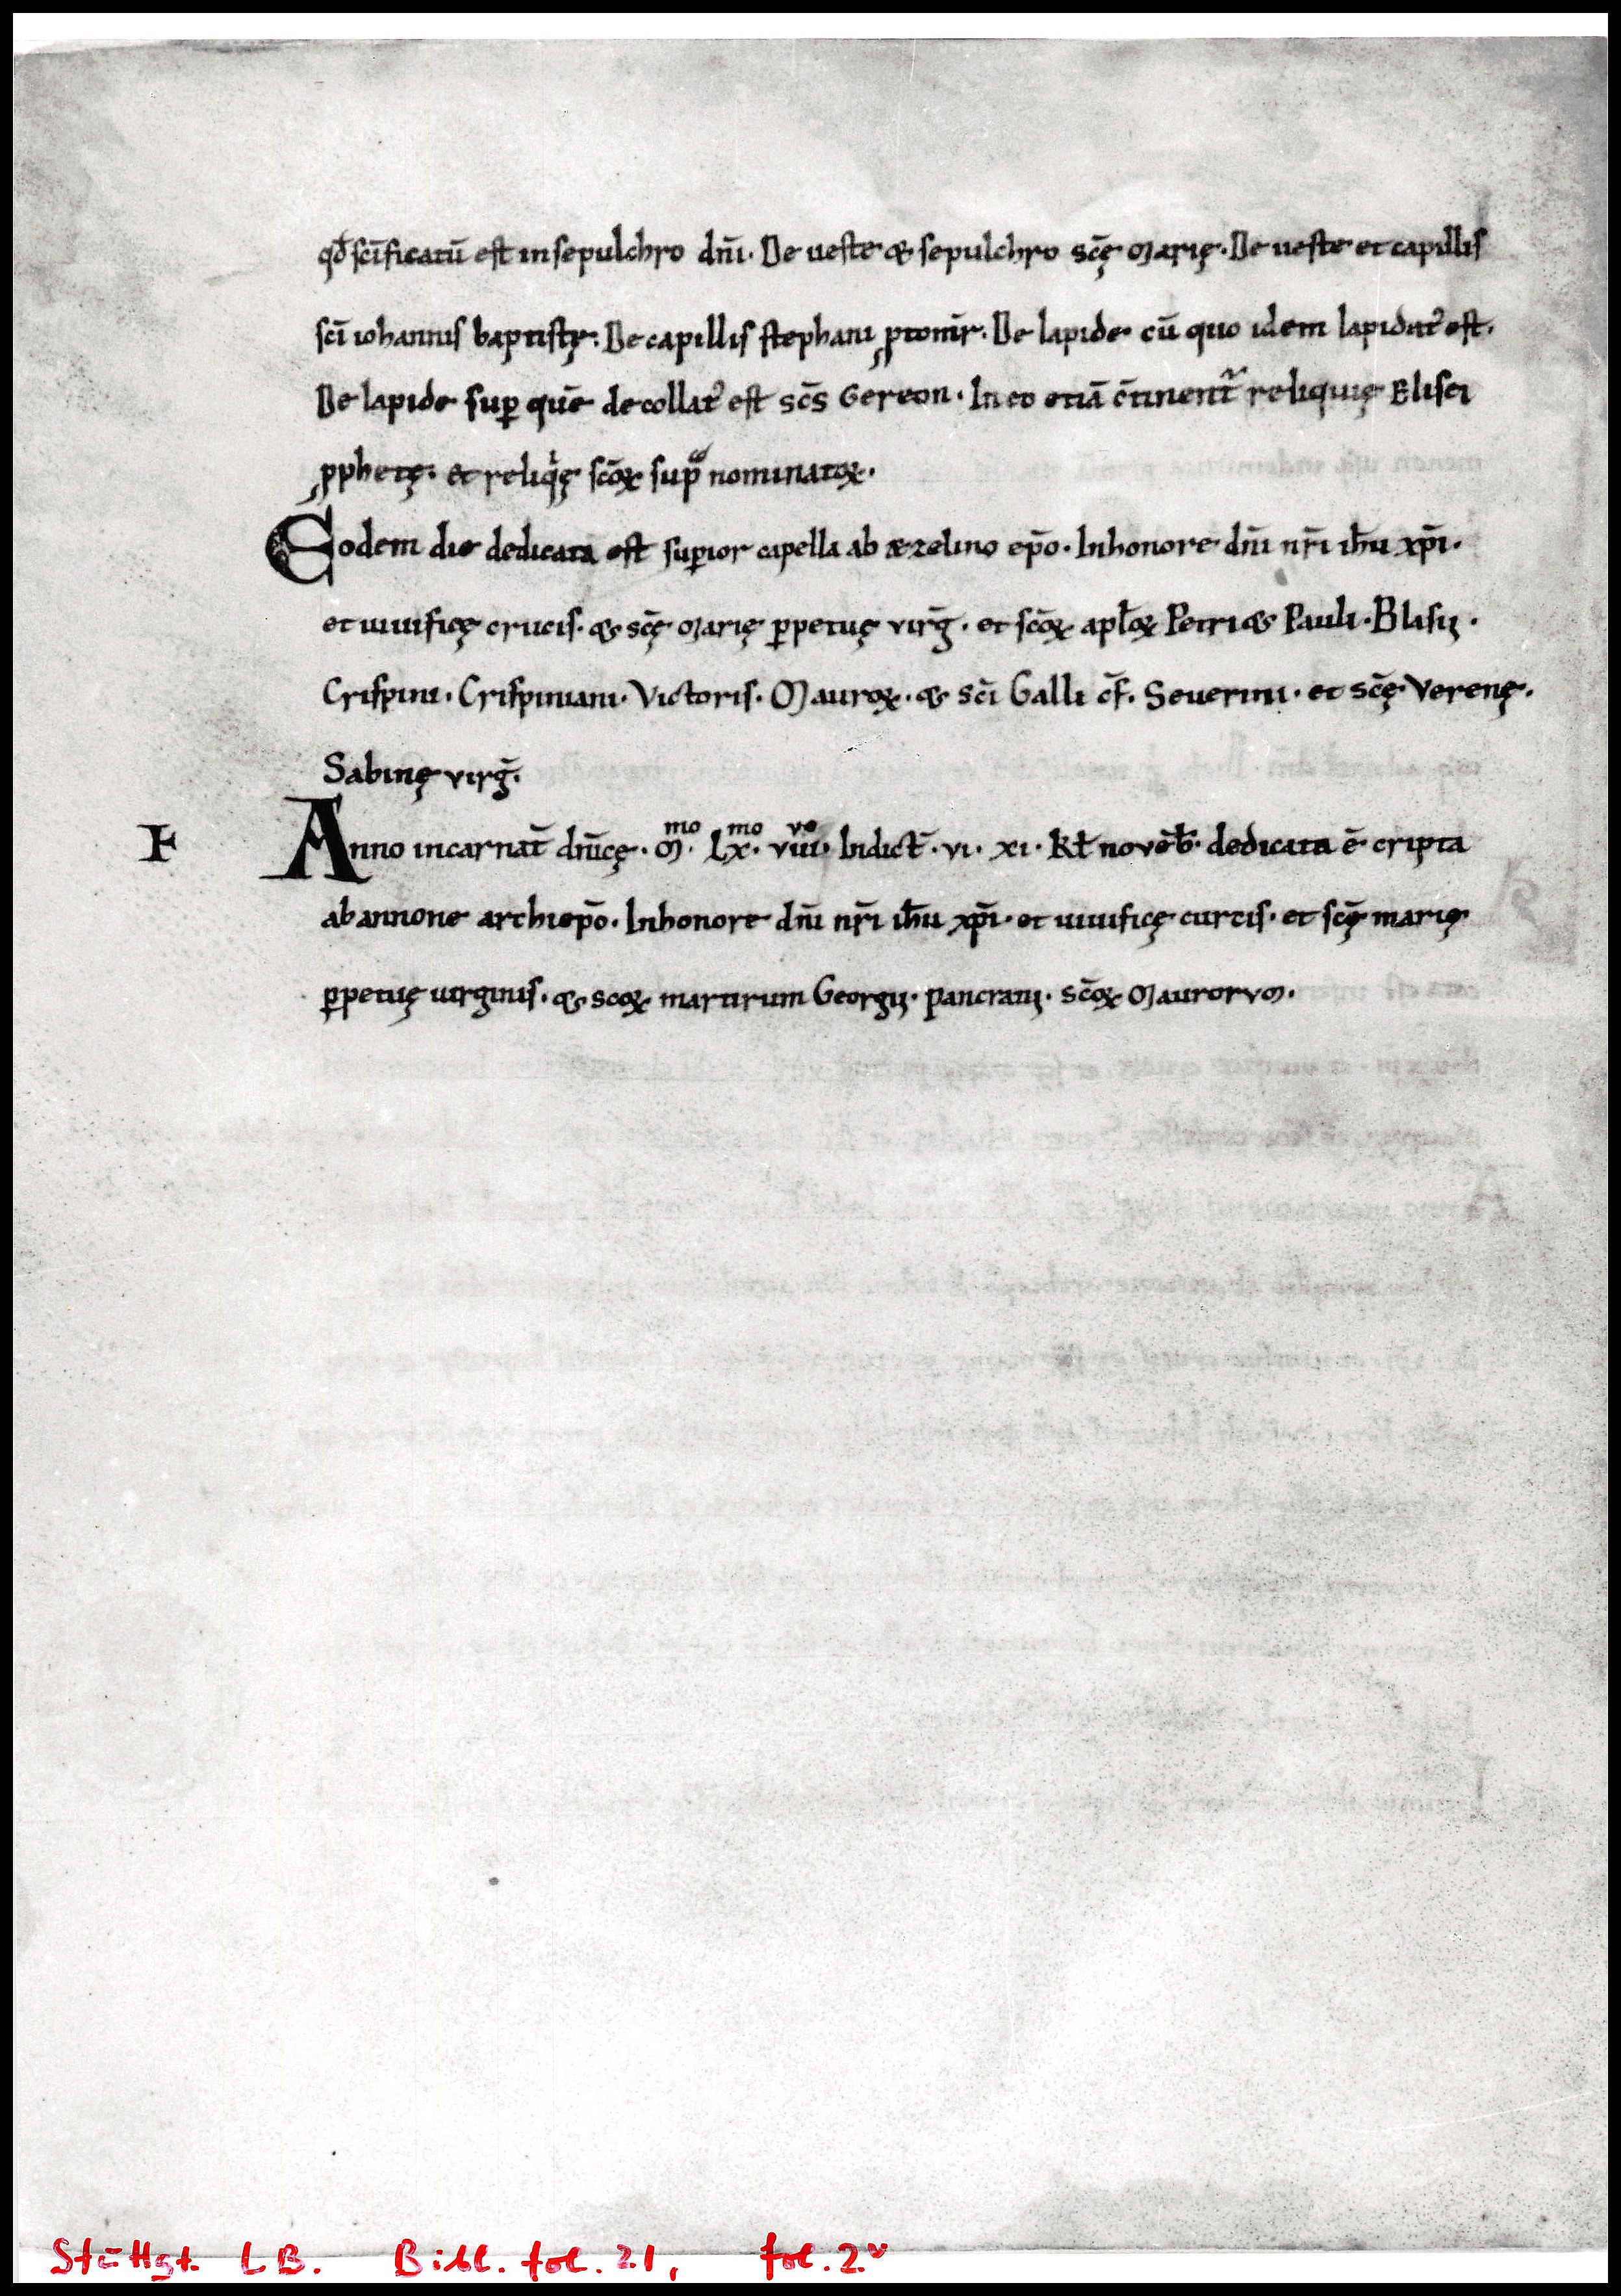 qđ scīficatū est in sepulchro dn̄i. De ueste & sepulchro scę̄ Marię. De ueste et capillis
scī iohannis baptistę. De capillis stephani ꝓtom̄r. De lapide cū quo idem lapidat᷒ est.
De lapide suꝑ quē decollat᷒ est sc̄s Gereon. In eo etiā c̄tinent᷑ reliquię Elisei
ꝓphetę. et reliqͥę scōꝝ supᷓ nominatoꝝ.
Eodem die dedicata est suꝑior capella ab æzelino ep̄o. In honore dn̄i nr̄i ih̄u xp̄i.
et uiuificę crucis. & scę̄ Marię ꝑpetuę virḡ. et scōꝝ apl̄oꝝ Petri & Pauli. Blasij.
Crispini. Crispiniani. Victoris. Mauroꝝ. & scī Galli c̄f. Seuerini. et scę̄ Verenę.
Sabinę virḡ.
F Anno incarnat̄ dn̄icę. ᴍ.ᵐᵒ Lx.ᵐᵒ viii.ᵛᵒ Indict̄. vi. xi. Kł novēb̄. dedicata ē cripta
ab annone archiep̄o. In honore dn̄i nr̄i ih̄u xp̄i. et uiuificę curcis. et scę̄ marię
ꝑpetuę uirginis. & scoꝝ martirum Georgij. pancratij. scōꝝ Maurorum.
Stuttgt. LB. Bibl. fol. 21, fol. 2ᵛ